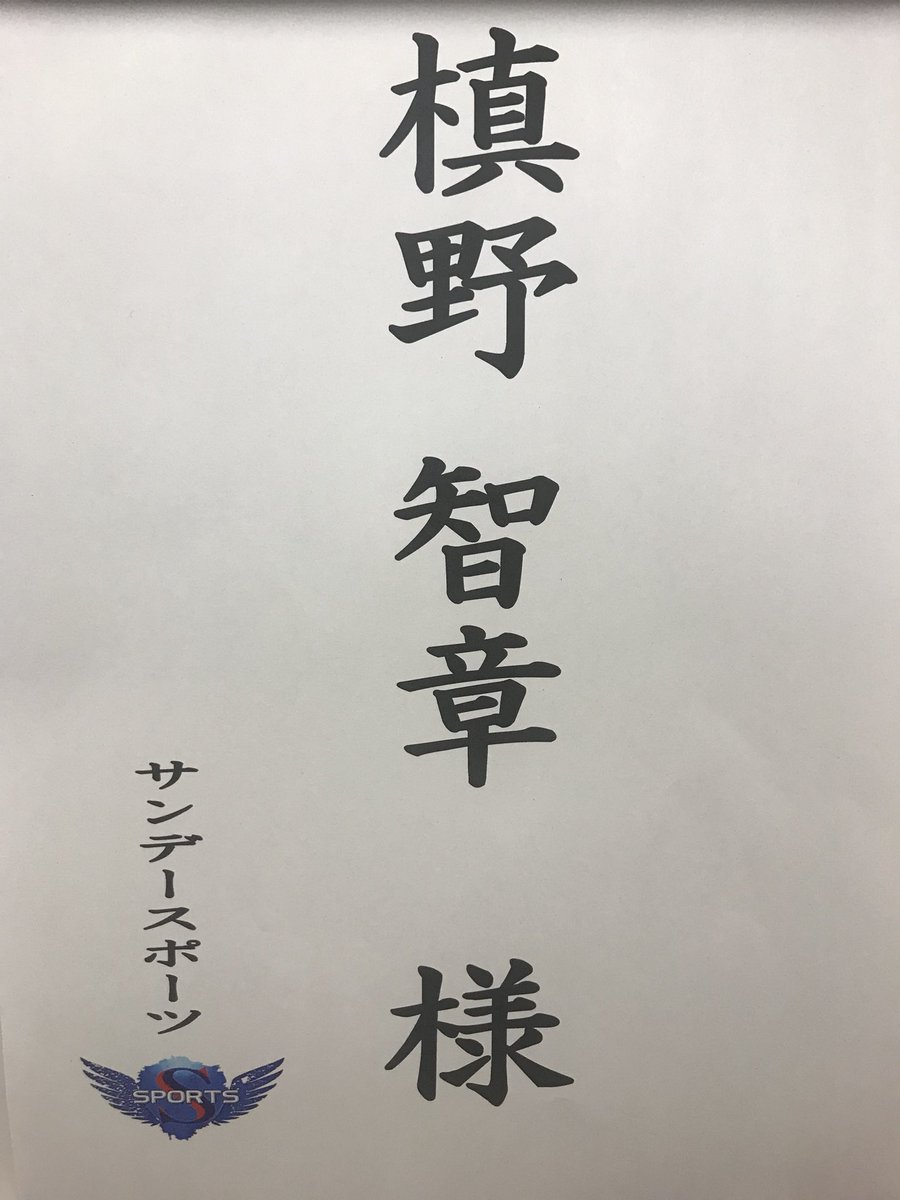 槙野 智章 様
サンデースポーツ
S SPORTS